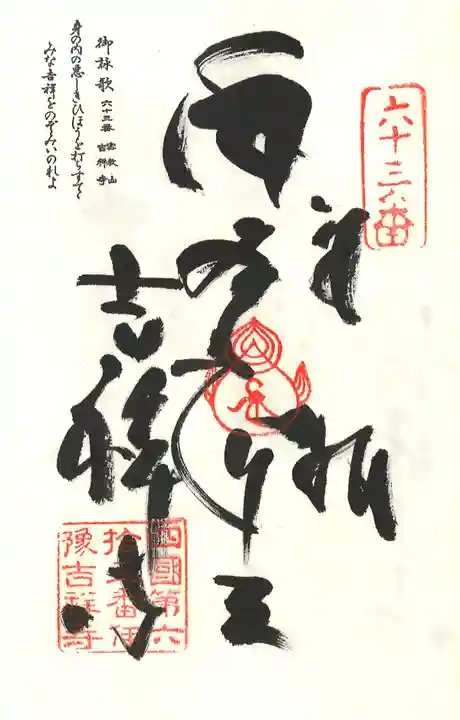 六十三番
奉拝
吉祥寺
四國第六
拾三番伊
豫吉祥寺
御詠歌 六十三番 密教山 吉祥寺
身の内の悪しきひほうを打ちすてて
みな吉祥をのぞみいのれよ